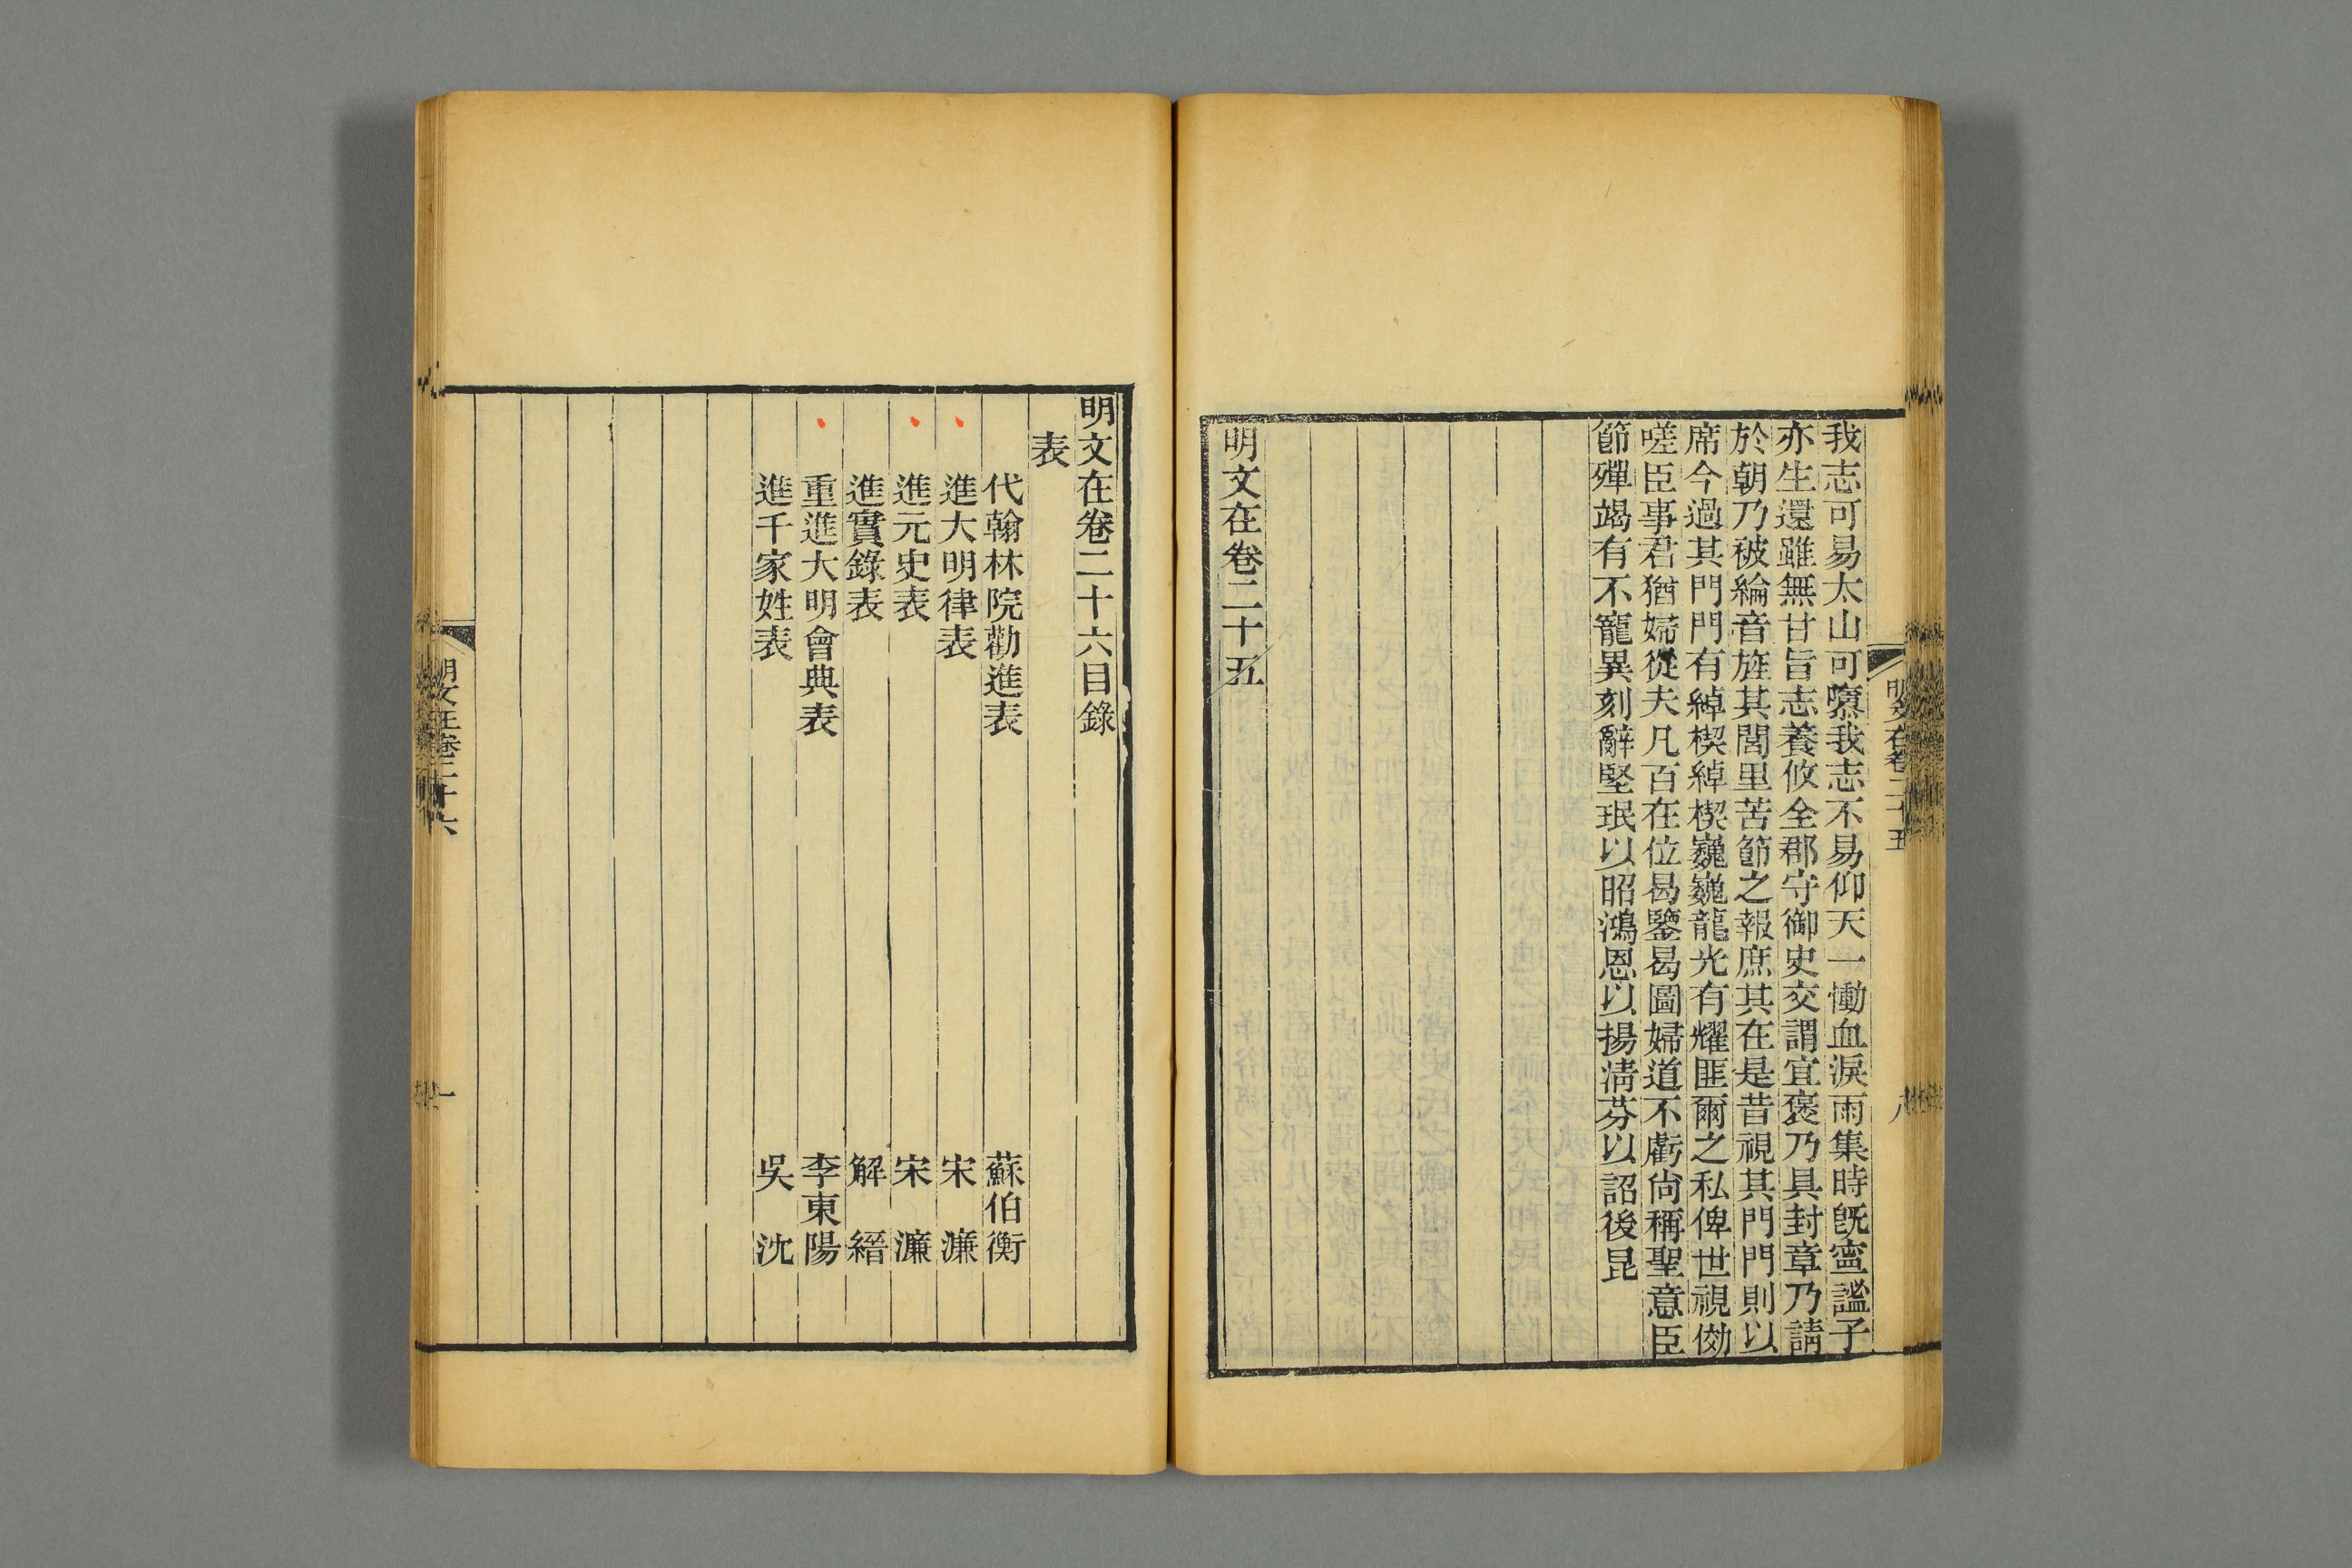 我志可易太山可隳我志不易仰天一慟血淚雨集時旣寍謐子
亦生還雖無甘旨志養攸全郡守御史交謂宜褒乃具封章乃請
於朝乃被綸音旌其閭里苦節之報庶其在是昔視其門門則以
席今過其門門有綽楔綽楔巍巍龍光有耀匪爾之私俾世視傚
嗟臣事君猶婦從夫凡百在位曷鑒曷圖婦道不虧尙稱聖意臣
節殫竭有不寵異刻辭堅珉以昭鴻恩以揚淸芬以詔後昆
明文在卷二十五
明文在卷二十五
八
明文在卷二十六目錄
表
代翰林院勸進表 蘇伯衡
進大明律表 宋濂
進元史表 宋濂
進實錄表 解縉
重進大明會典表 李東陽
進千家姓表 吳沈
明文在卷二十六
一